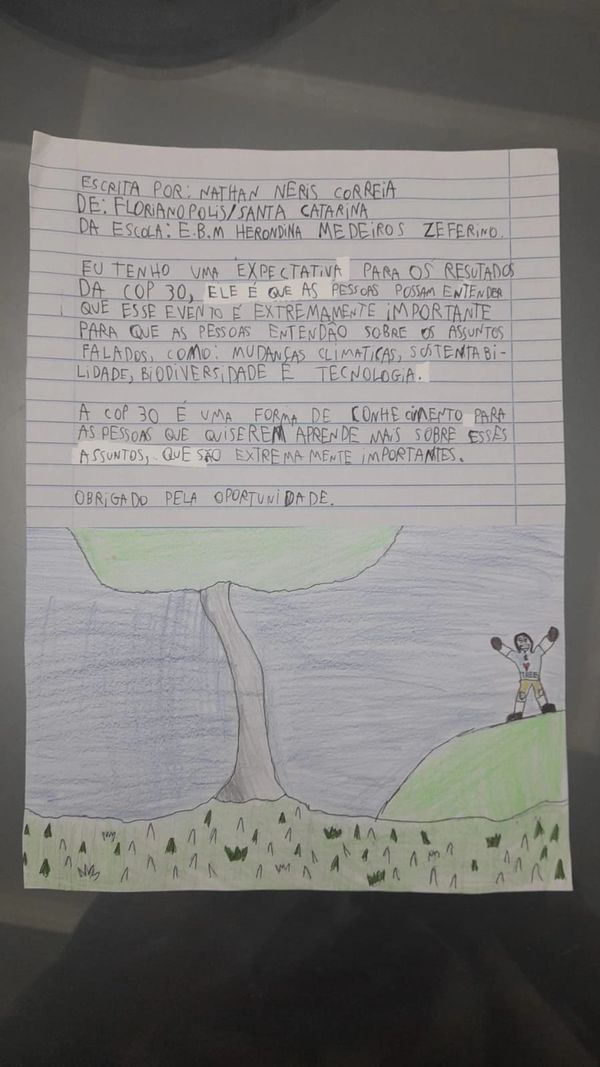 ESCRITA POR: NATHAN NERIS CORREIA
DE: FLORIANOPOLIS/SANTA CATARINA
DA ESCOLA: E.B.M HERONDINA MEDEIROS ZEFERINO.
EU TENHO UMA EXPECTATIVA PARA OS RESUTADOS
DA COP 30, ELE É QUE AS PESSOAS POSSAM ENTENDER
QUE ESSE EVENTO É EXTREMAMENTE IMPORTANTE
PARA QUE AS PESSOAS ENTENDÃO SOBRE OS ASSUNTOS
FALADOS, COMO: MUDANÇAS CLIMATICAS, SUSTENTABI-
LIDADE, BIODIVERSIDADE E TECNOLOGIA.
A COP 30 É UMA FORMA DE CONHECIMENTO PARA
AS PESSOAS QUE QUISEREM APRENDE MAIS SOBRE ESSES
ASSUNTOS, QUE SÃO EXTREMAMENTE IMPORTANTES.
OBRIGADO PELA OPORTUNIDADE.